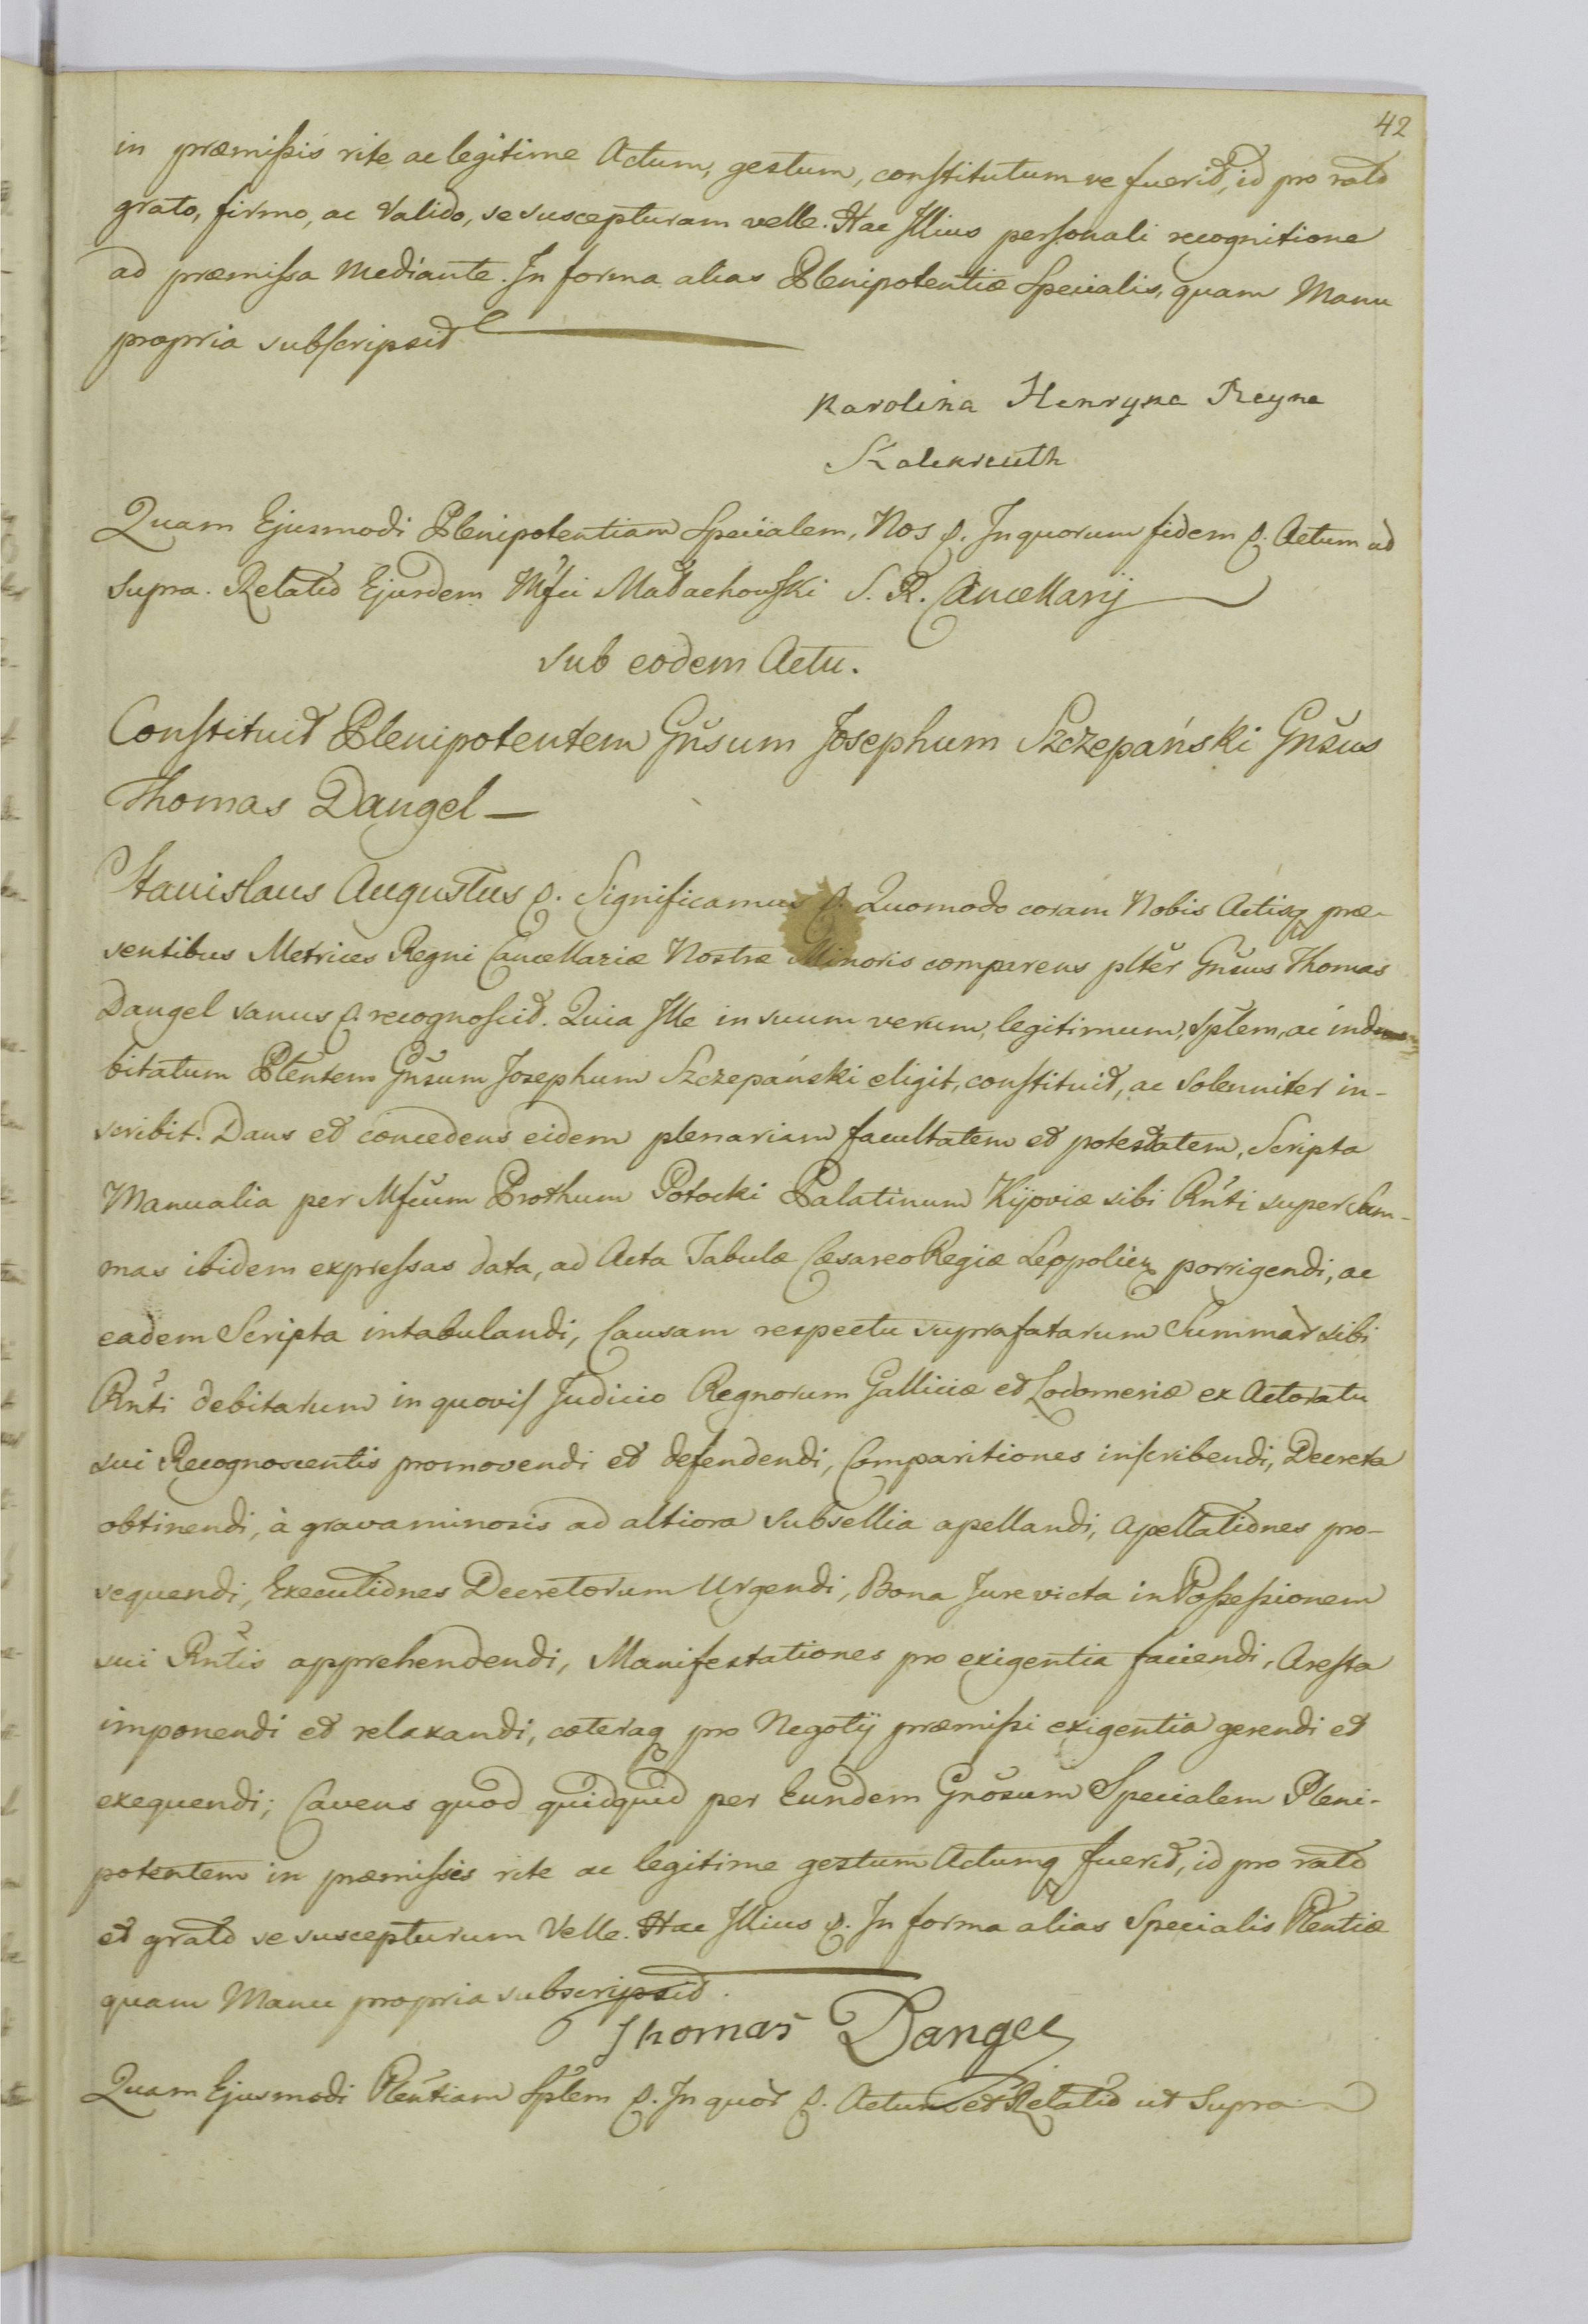 42
in præmissis rite ac legitime Actum, gestum, constitutum ve fuerit, id pro rato
grato, firmo, ac Valido, se suscepturam velle. Hac Illius personali recognitione
ad præmissa Mediante. In forma alias Plenipotentiæ Specialis, quam Manu
propria subscripsit
Karolina Henryka Reyna
Kalckreuth
Quam Ejusmodi Plenipotentiam Specialem, Nos p. In quorum fidem p. Actum ut
supra. Relatio Ejusdem Mfci Małachowski S. R. Cancellarij
sub eodem Actu.
Constituit Plenipotentem Gñsum Josephum Szczepański Gñsus
Thomas Dangel—
Stanislaus Augustus p. Significamus p. Quomodo coram Nobis Actisq præ-
sentibus Metrices Regni Cancellariæ Nostræ Minoris comparens plter Gñsus Thomas
Dangel sanus p. recognoscit. Quia Ille in suum verum, legitimum, Sptem, ac indu
bitatum Pltentem Gñsum Josephum Szczepański eligit, constituit, ac Solenniter in-
scribit. Dans et concedens eidem plenariam facultatem et potestatem, Scripta
Manualia per Mfcum Prothum Potocki Palatinum Kijoviæ sibi Rñti super Sum-
mas ibidem expressas data, ad Acta Tabulæ Cæsareo Regiæ Leopolien porrigendi, ac
eadem Scripta intabulandi, Causam respectu suprafatarum Summar sibi
Rñti debitarum in quovis Judicio Regnorum Galliciæ et Lodomeriæ ex Actoratu
sui Recognoscentis promovendi et defendendi, Comparitiones inscribendi, Decreta
obtinendi, à gravaminosis ad altiora Subsellia apellandi, Apellationes pro-
sequendi, Executiones Decretorum Urgendi, Bona Jure victa in Possessionem
sui Rñtis apprehendendi, Manifestationes pro exigentia faciendi, Aresta
imponendi et relaxandi, cæteraq pro Negotij præmissi exigentia gerendi et
exequendi; Cavens quod quidquid per Eundem Gñosum Specialem Pleni-
potentem in præmissis rite ac legitime gestum Actumq fuerit, id pro rato
et grato se suscepturum Velle. Hac Illius p. In forma alias Specialis Pltentiæ
quam Manu propria subscripsit.
Thomas Dangel
Quam Ejusmodi Pltentiam Sptem p. In quor p. Actum et Relatio ut Supra